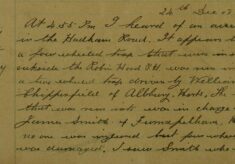 24th Dec 03
At 4.55 Pm I heard of an acci
in the Hadham Road. It appears t
a four wheeled trap that was in
outside the Robin Hood P.H. was run in
a two wheel trap driven by William
Chipperfield of Albury, Herts, Th
that was run into was in charge
James Smith of Furneux Pelham,
no one was injured but four whee
was damaged. I saw Smith who